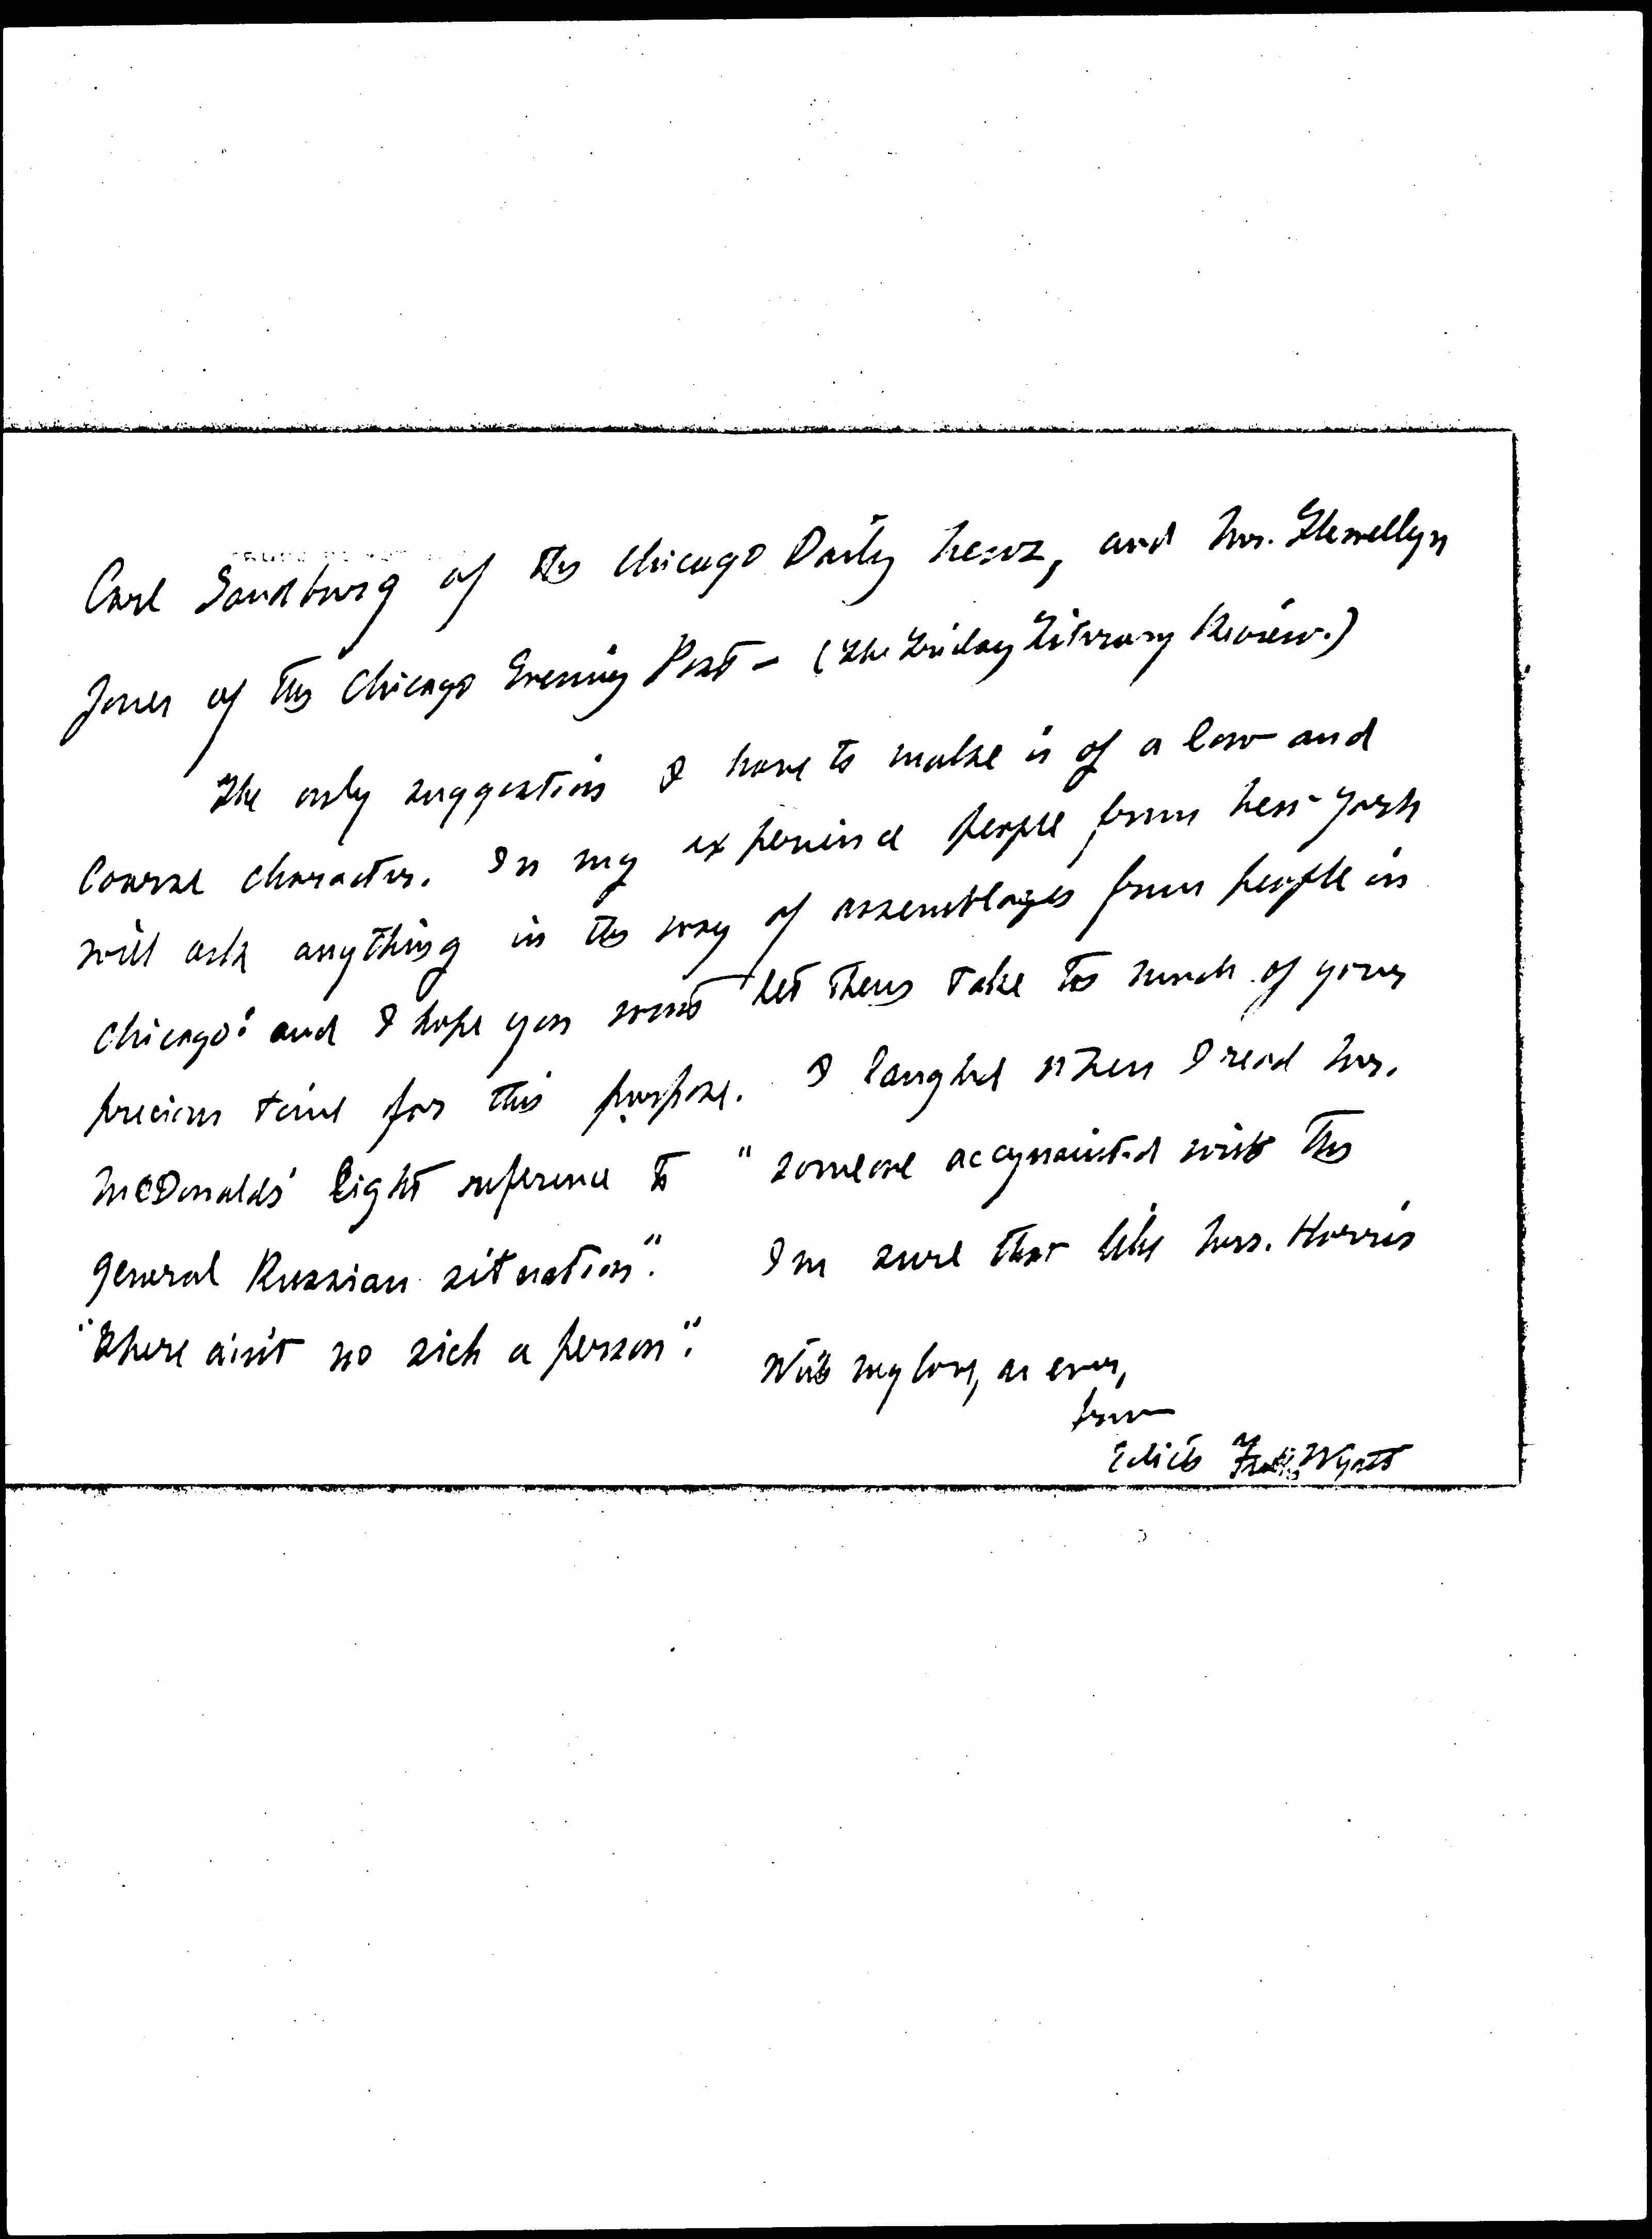 Carl Sandburg of the Chicago Daily News, and Mr. Llewellyn
Jones of the Chicago Evening Post – (The Friday Literary Review.)
The only suggestion I have to make is of a low and
coarse character. In my experience people from New York
will ask anything in the way of assemblages from people in
Chicago: and I hope you wont let them take too much of your
precious time for this purpose. I laughed when I read Mr.
McDonalds' light reference to "someone acquainted with the
general Russian situation." I'm sure that like Mrs. Harris
"there ain't no sich a person".
With my love, as ever,
from
Edith Franklin Wyatt